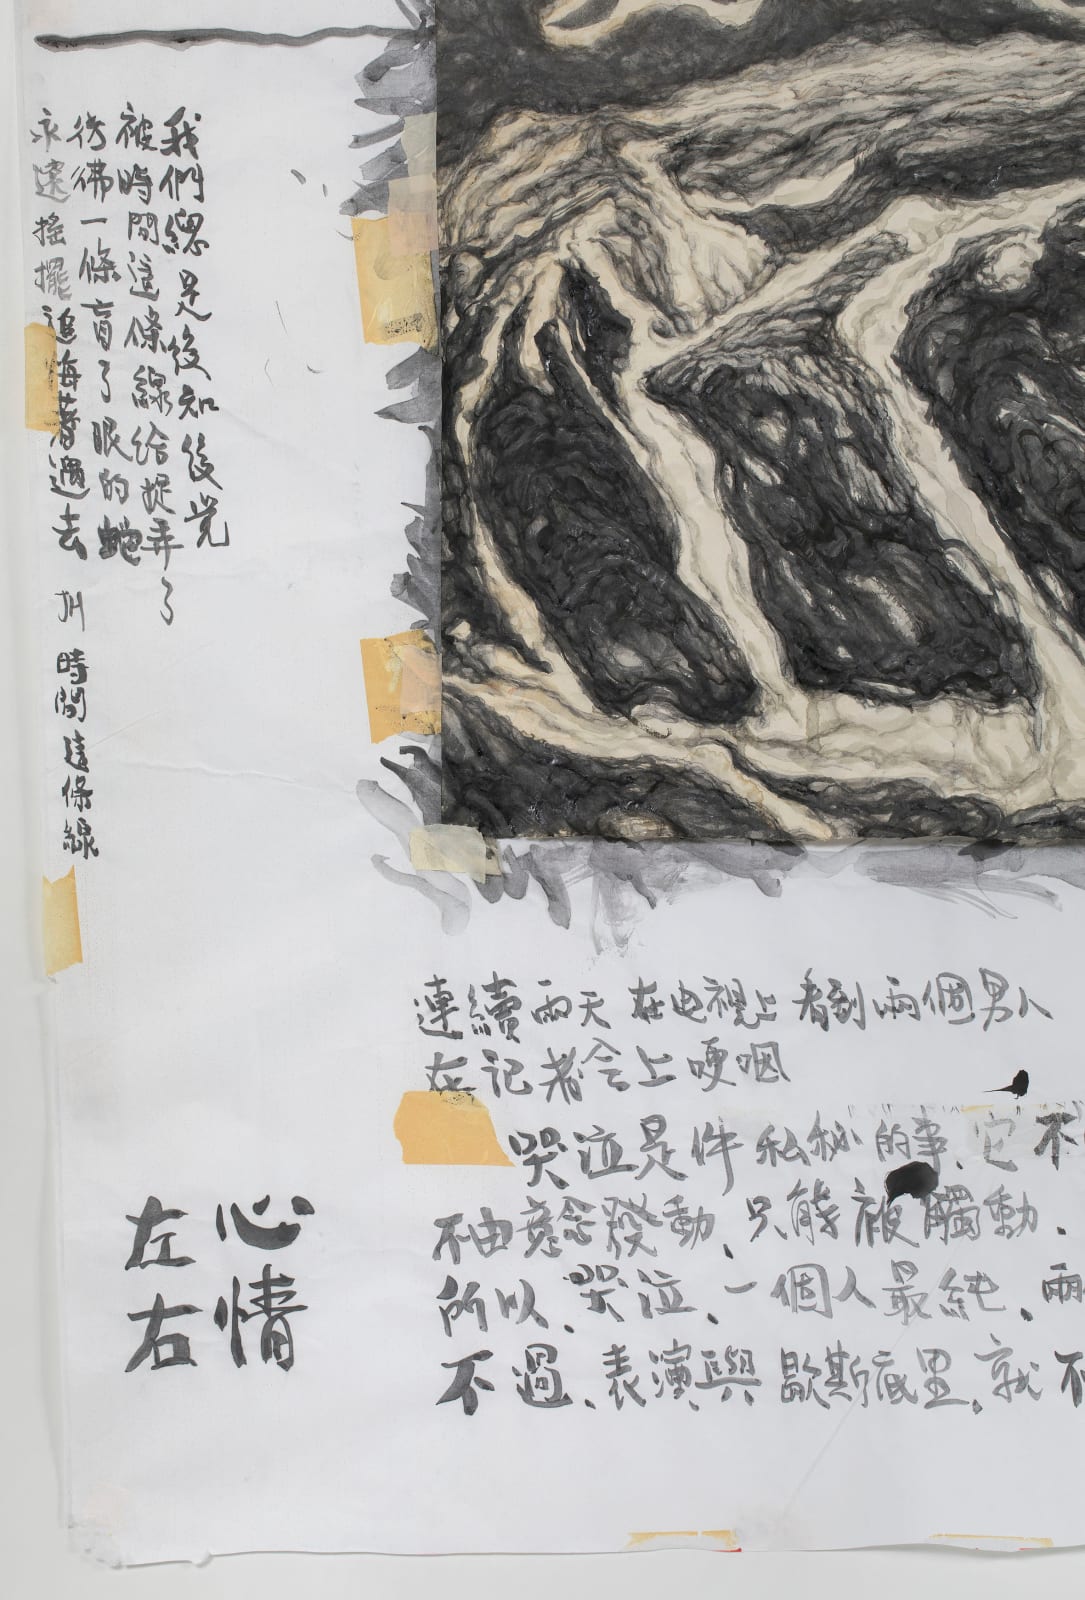 我們總是後知後覚
被時間這條線給捉弄了
彷彿一條盲了眼的蛇
永遠搖擺追悔著過去
時間這條線
連續兩天 在电視上 看到兩個男人
在记者会上哽咽
哭泣是件 私秘的事、它不
不由意念發動、只能被觸動.
所以、哭泣、一個人最純、兩
不過、表演與歇斯底里、就不
心情
左右